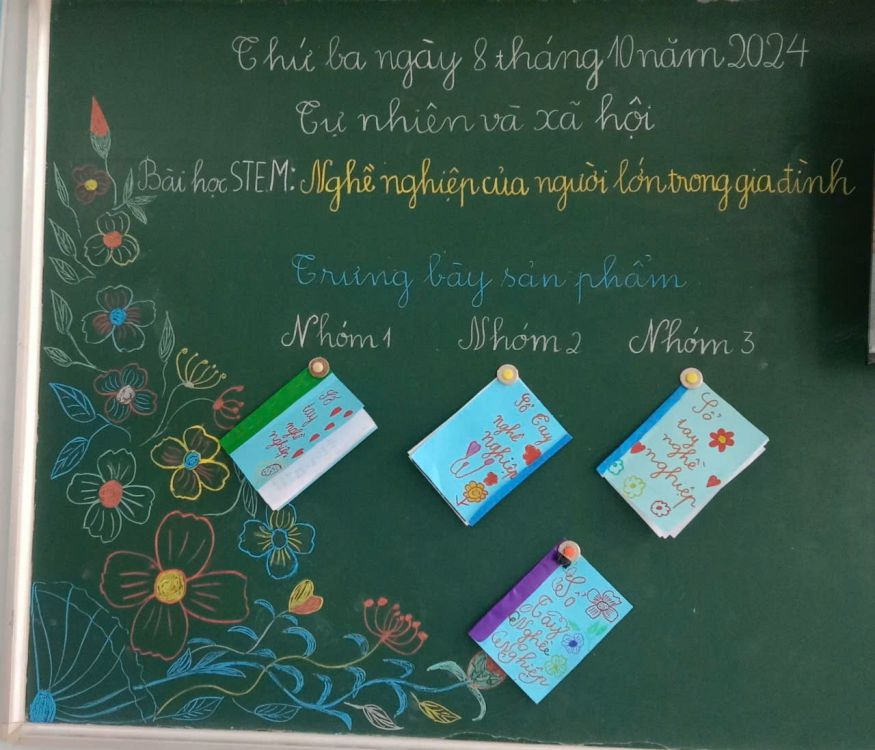 Thứ ba ngày 8 tháng 10 năm 2024
Tự nhiên và xã hội
Bài học STEM: Nghề nghiệp của người lớn trong gia đình
Trưng bày sản phẩm
Nhóm 1
Nhóm 2
Nhóm 3
Sổ
tay
nghề
nghiệp
Sổ Tay
nghề
nghiệp
Sổ
tay
nghề
nghiệp
Sổ
Tay
Nghề
Nghiệp